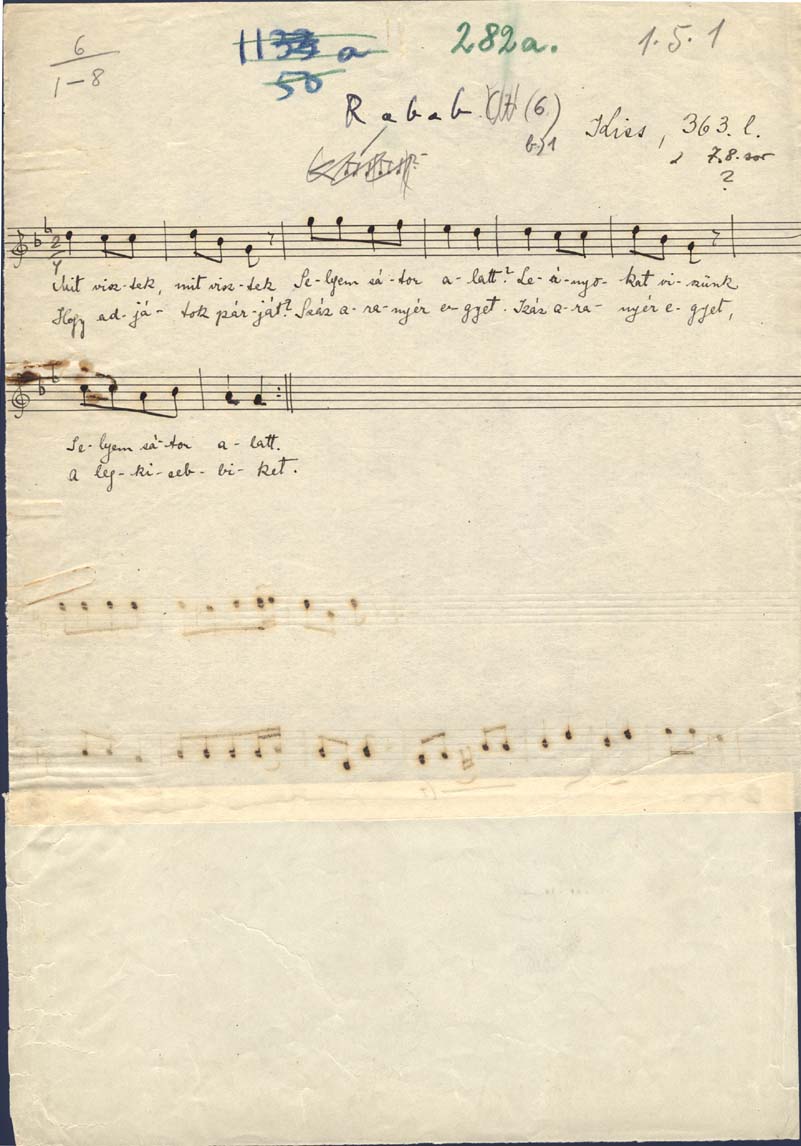 6
1-8
1133 a
50
282a.
1. 5. 1
Rabab (6.)
b.)1
Kiss, 363. l.
7.8. sor
?
2
4
Mit visz-tek, mit visz-tek Se-lyem sá-tor a-latt? Le-á-nyo-kat vi-szünk
Hogy ad-já-tok pár-ját? Száz a-ra-nyér e-gyet. Száz a-ra-nyér e-gyet,
Se-lyem sá-tor a-latt.
a leg-ki-seb-bi-ket.